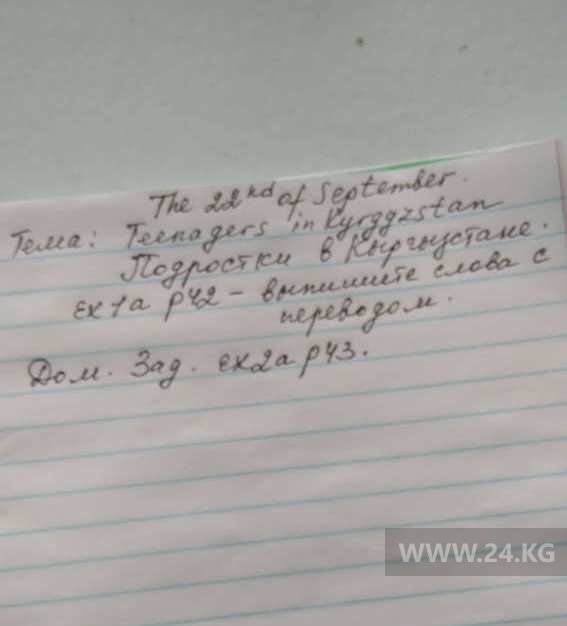 The 22nd of September.
Тема: Teenagers in Kyrggzstan
Подростки в Кыргызстане.
ex1a p42 - выпишите слова с
переводом.
Дом. Зад. ex2a p43.
WWW.24.KG